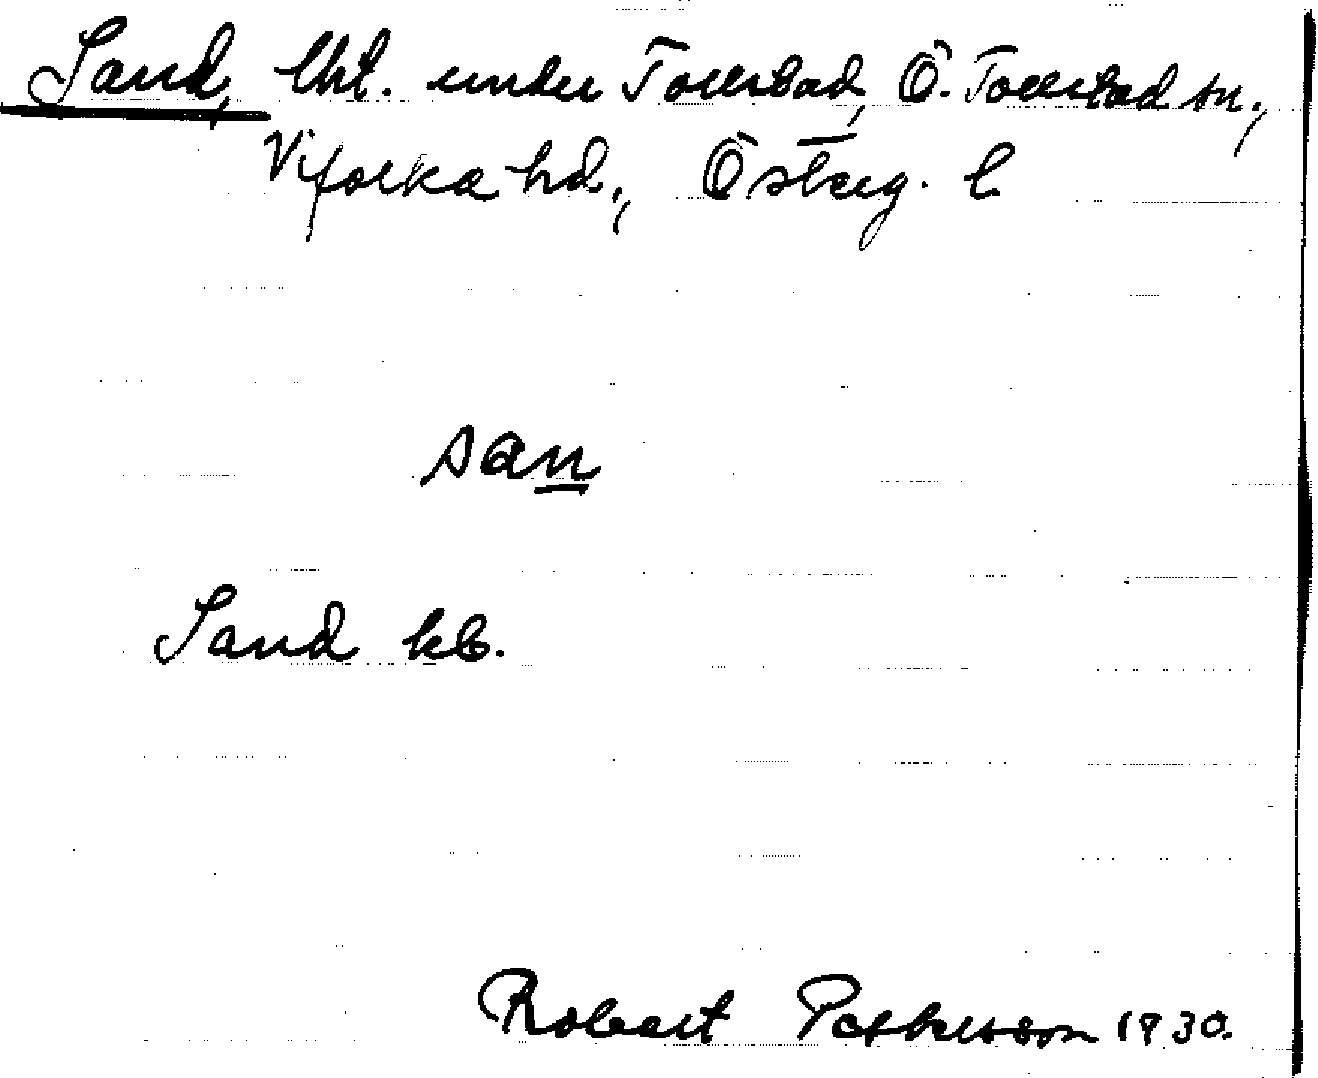 Sand, lht. under Tollstad, Ö. Tollstad sn.,
Vifolka hd., Österg. l
san
Sand kb.
Robert Pettersson 1930.